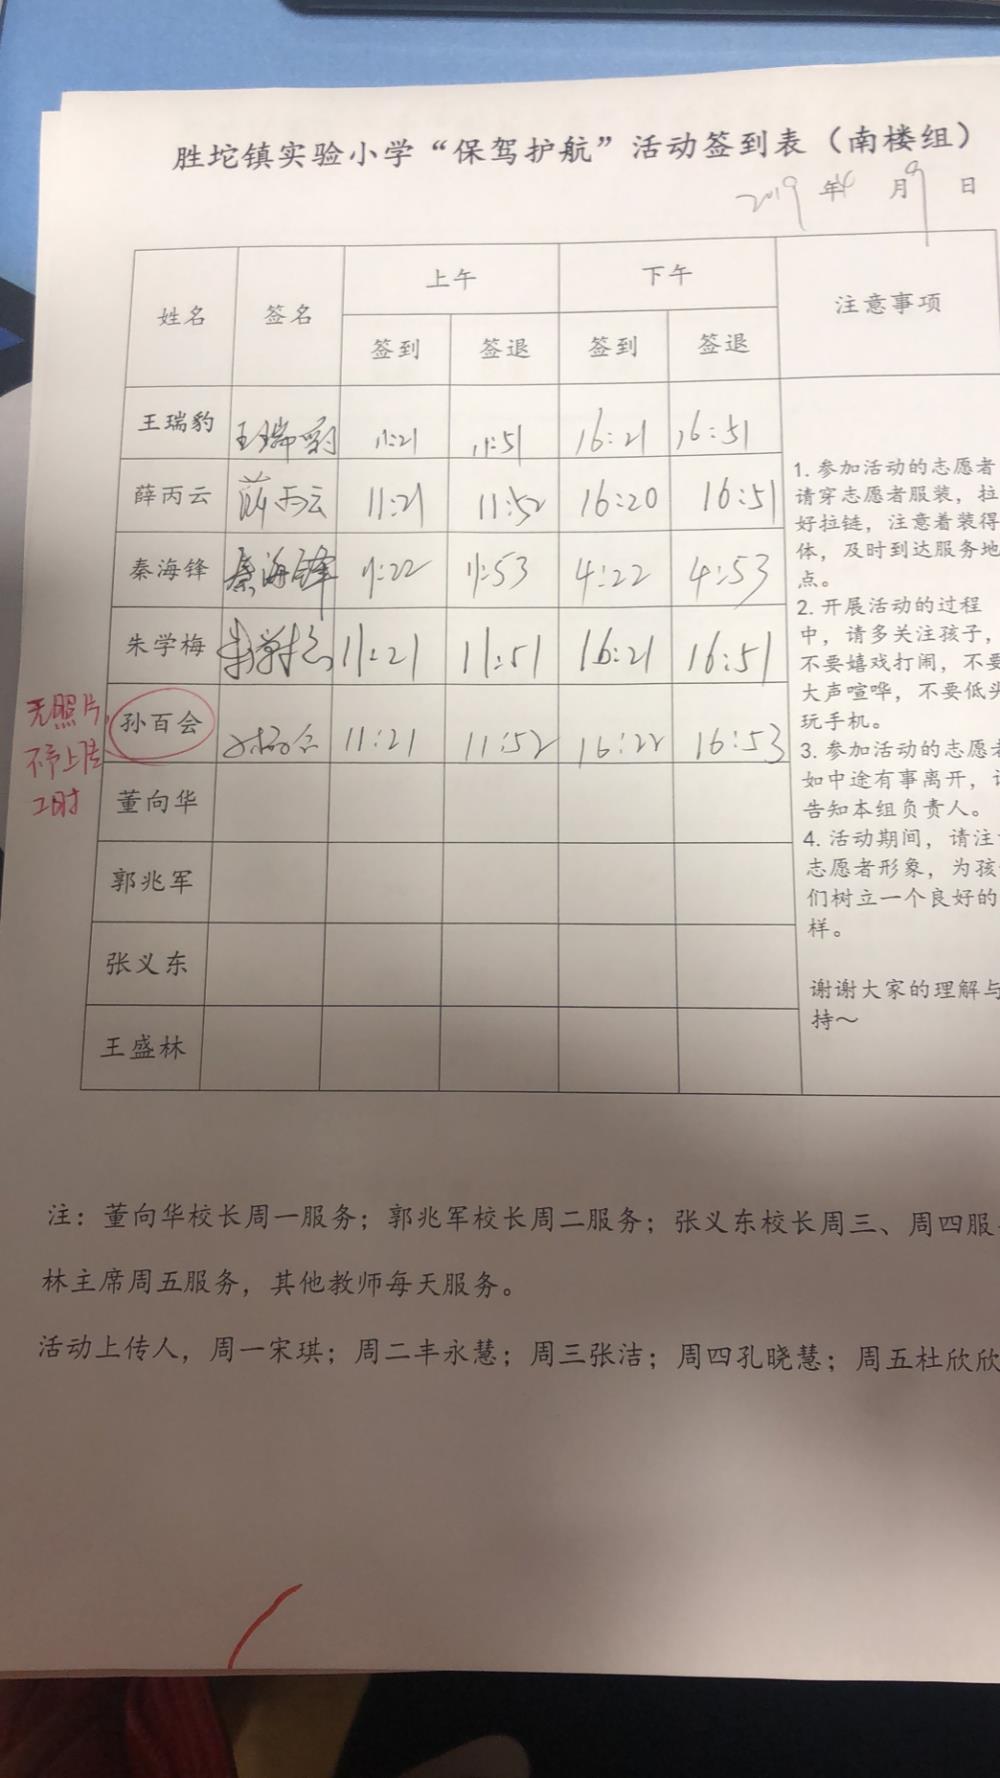 胜坨镇实验小学“保驾护航”活动签到表（南楼组）
2019 年4 月9 日
姓名 签名 上午 下午 注意事项
签到 签退 签到 签退
王瑞豹 王瑞豹 11:21 11:51 16:21 16:51
薛丙云 薛丙云 11:21 11:52 16:20 16:51
秦海锋 秦海锋 11:22 11:53 4:22 4:53
朱学梅 朱学梅 11:21 11:51 16:21 16:51
无照片,
不予上传
工时
孙百会 孙百会 11:21 11:52 16:22 16:53
董向华
郭兆军
张义东
王盛林
1. 参加活动的志愿者
请穿志愿者服装，拉
好拉链，注意着装得
体，及时到达服务地
点。
2. 开展活动的过程
中，请多关注孩子，
不要嬉戏打闹，不要
大声喧哗，不要低头
玩手机。
3. 参加活动的志愿者
如中途有事离开，请
告知本组负责人。
4. 活动期间，请注意
志愿者形象，为孩子
们树立一个良好的
样。
谢谢大家的理解与
持～
注：董向华校长周一服务；郭兆军校长周二服务；张义东校长周三、周四服务
林主席周五服务，其他教师每天服务。
活动上传人，周一宋琪；周二丰永慧；周三张洁；周四孔晓慧；周五杜欣欣